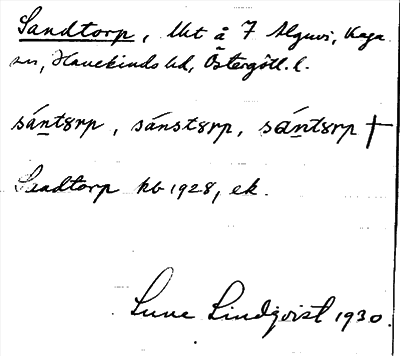 Sandtorp, lht å 7 Alguvi, Kaga
sn, Hanekinds hd, Östergötl. l.
sántɤrp, sánstɤrp, sántɤrp †
Sandtorp kb 1928, ek.
Sune Lindqvist 1930.